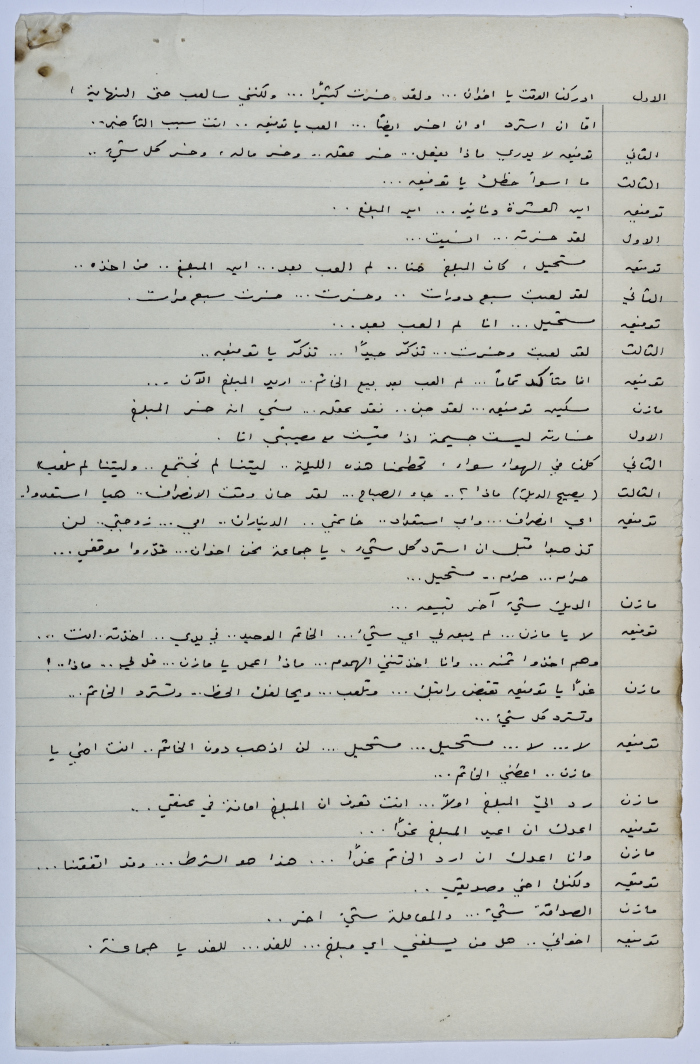 الاول ادركنا الوقت يا اخوان ... ولقد خسرت كثيرًا ... ولكنني سالعب حتى النهاية !
اما ان استرد او ان اخسر ايضًا ... العب يا توفيق .. انت سبب التأخير ..
الثاني توفيق لا يدري ماذا يفعل ... خسر عقله .. وخسر ماله ، وخسر كل شيء ..
الثالث ما اسوأ حظك يا توفيق ...
توفيق اين العشرة دنانير ... اين المبلغ ..
الاول لقد خسرته ... انسيت ...
توفيق مستحيل ، كان المبلغ هنا .. لم العب بعد ... اين المبلغ .. من اخذه ..
الثاني لقد لعبت سبع دورات .. وخسرت ... خسرت سبع مرات .
توفيق مستحيل ... انا لم العب بعد ...
الثالث لقد لعبت وخسرت ... تذكّر جيدًا ... تذكّر يا توفيق ..
توفيق انا متأكد تمامًا ... لم العب بعد بيع الخاتم ... اريد المبلغ الآن ...
مازن مسكين توفيق ... لقد جن .. فقد عقله ... نسي انه خسر المبلغ
الاول خسارته ليست جسيمة اذا قيست مع مصيبتي انا .
الثاني كلنا في الهواء سواء ، تحطمنا هذه الليلة .. ليتنا لم نجتمع .. وليتنا لم نلعب
الثالث ( يصيح الديك ) ماذا ؟ .. جاء الصباح ... لقد حان وقت الانصراف .. هيا استعدوا .
توفيق اي انصراف ... واي استعداد .. خاتمي .. الديناران .. امي ... زوجتي .. لن
تذهبوا قبل ان استرد كل شيء . يا جماعة نحن اخوان ... قدّروا موقفي ...
حرام ... حرام .. مستحيل ...
مازن الديك شيء آخر تبيعه ...
توفيق لا يا مازن ... لم يبق لي اي شيء ... الخاتم الوحيد .. في يدي .. اخذته انت ...
وهم اخذوا ثمنه ... وانا اخذتني الهموم ... ماذا اعمل يا مازن ... قل لي .. ماذا .. !
مازن غدًا يا توفيق تقبض راتبك ... وتلعب ... ويحالفك الحظ .. وتسترد الخاتم ...
وتسترد كل شيء ...
توفيق لا ... لا ... مستحيل ... مستحيل ... لن اذهب دون الخاتم .. انت اخي يا
مازن .. اعطني الخاتم ...
مازن رد اليّ المبلغ اولاً ... انت تعرف ان المبلغ امانة في عنقي ...
توفيق اعدك ان اعيد المبلغ غدًا ...
مازن وانا اعدك ان ارد الخاتم غدًا ... هذا هو الشرط ... وقد اتفقنا ...
توفيق ولكنك اخي وصديقي ..
مازن الصداقة شيء ... والمعاملة شيء اخر ..
توفيق اخواني .. هل من يسلفني اي مبلغ ... للغد ... للغد يا جماعة .